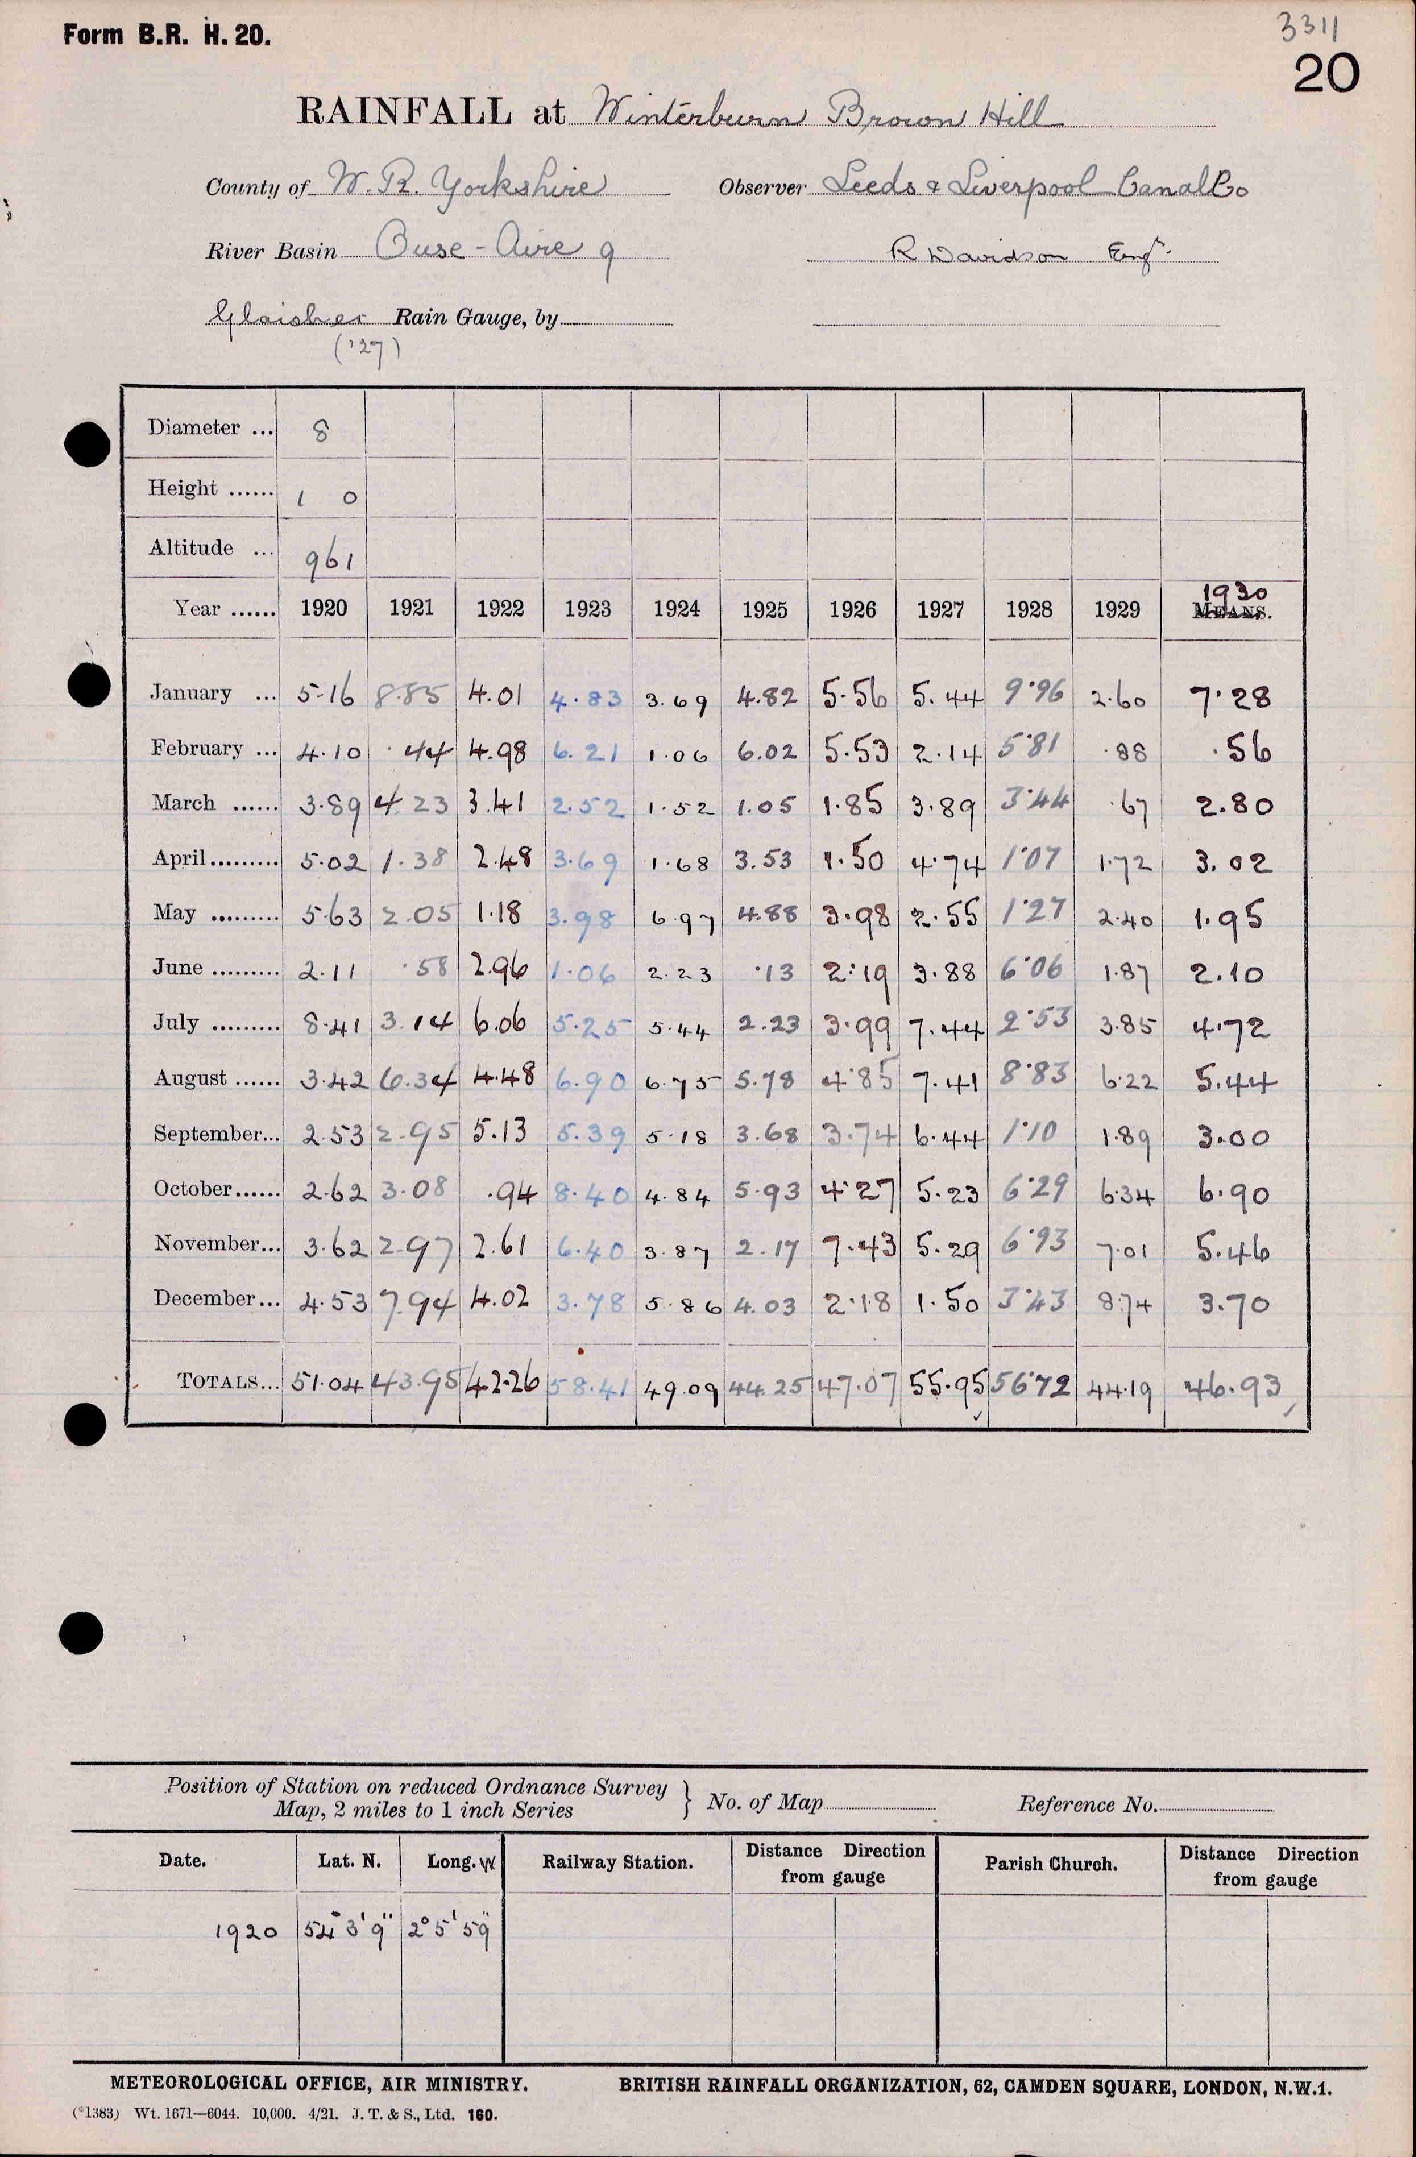 Form B.R. H. 20.
3311
20
RAINFALL at Winterburn Brown Hill
County of W. R. Yorkshire Observer Leeds & Liverpool Canal Co
River Basin Ouse - Aire 9 R Davidson Engr.
Glaisher Rain Gauge, by
('27)
Diameter ... 8
Height ...... 1 0
Altitude ... 961
Year ...... 1920 1921 1922 1923 1924 1925 1926 1927 1928 1929 1930 MEANS.
January ... 5.16 8.85 4.01 4.83 3.69 4.82 5.56 5.44 9.96 2.60 7.28
February ... 4.10 .44 4.98 6.21 1.06 6.02 5.53 2.14 5.81 .88 .56
March ...... 3.89 4.23 3.41 2.52 1.52 1.05 1.85 3.89 3.44 .67 2.80
April......... 5.02 1.38 2.48 3.69 1.68 3.53 1.50 4.74 1.07 1.72 3.02
May ......... 5.63 2.05 1.18 3.98 6.97 4.88 3.98 2.55 1.27 2.40 1.95
June ......... 2.11 .58 2.96 1.06 2.23 .13 2.19 3.88 6.06 1.87 2.10
July ......... 8.41 3.14 6.06 5.25 5.44 2.23 3.99 7.44 2.53 3.85 4.72
August ...... 3.42 6.34 4.48 6.90 6.75 5.78 4.85 7.41 8.83 6.22 5.44
September... 2.53 2.95 5.13 5.39 5.18 3.68 3.74 6.44 1.10 1.89 3.00
October...... 2.62 3.08 .94 8.40 4.84 5.93 4.27 5.23 6.29 6.34 6.90
November... 3.62 2.97 2.61 6.40 3.87 2.17 7.43 5.29 6.93 7.01 5.46
December... 4.53 7.94 4.02 3.78 5.86 4.03 2.18 1.50 3.43 8.74 3.70
TOTALS... 51.04 43.95 42.26 58.41 49.09 44.25 47.07 55.95 56.72 44.19 46.93
Position of Station on reduced Ordnance Survey
Map, 2 miles to 1 inch Series } No. of Map Reference No.
Date. Lat. N. Long. W Railway Station. Distance Direction from gauge Parish Church. Distance Direction from gauge
1920 54° 3' 9" 2° 5' 59"
METEOROLOGICAL OFFICE, AIR MINISTRY. BRITISH RAINFALL ORGANIZATION, 62, CAMDEN SQUARE, LONDON, N.W.1.
(*1383) Wt. 1671—6044. 10,000. 4/21. J. T. & S., Ltd. 160.